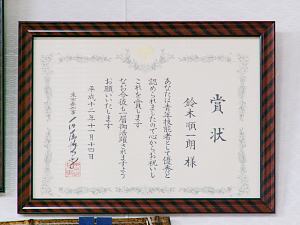 賞状
鈴木順一朗様
あなたは青年技能者として優秀と
認められましたので心からお祝いし
これを賞します
なお今後も一層御活躍されますよう
お願いいたします
平成十二年十一月十四日